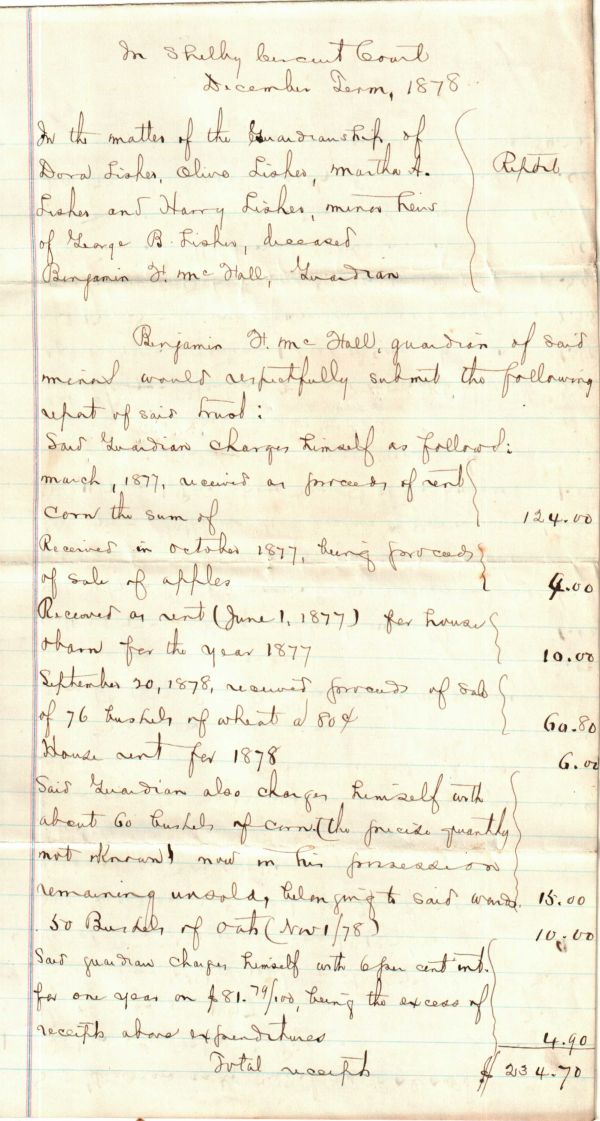 In Shelby Circuit Court
December Term, 1878
In the matter of the Guardianship of
Dora Lisher, Olive Lisher, Martha A.
Lisher and Harry Lisher, minor heirs
of George B. Lisher, deceased
Benjamin H. McFall, Guardian
Report
Benjamin H. McFall, guardian of said
minors would respectfully submit the following
report of said trust:
Said Guardian charges himself as follows:
March, 1877, received as proceeds of rent
corn the sum of 124.00
Received in October 1877, being proceeds
of sale of apples 4.00
Received as rent (June 1, 1877) for house
& barn for the year 1877 10.00
September 20, 1878, received proceeds of sale
of 76 bushels of wheat a 80¢ 60.80
House rent for 1878 6.00
Said Guardian also charges himself with
about 60 bushels of corn (the precise quantity
not known) now in his possession
remaining unsold, belonging to said wards. 15.00
50 Bushels of Oats (Nov 1/78) 10.00
Said guardian charges himself with 6 per cent int.
for one year on $81.79/100, being the excess of
receipts above expenditures 4.90
Total receipts $234.70